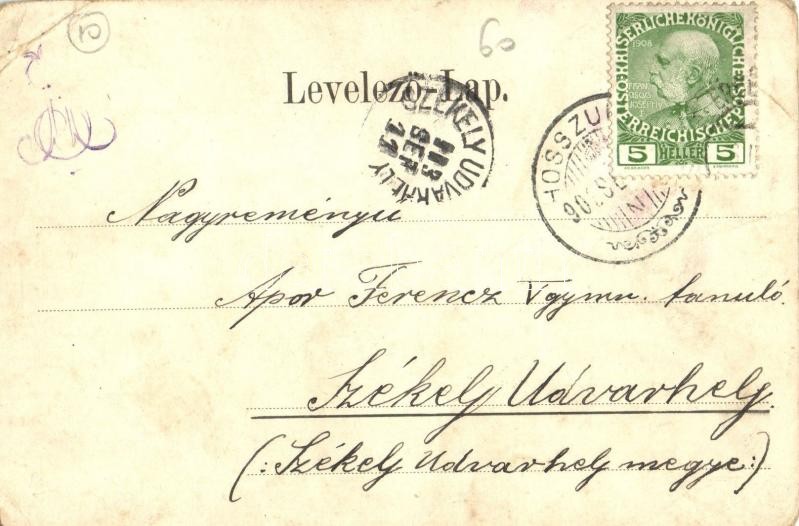 60
Levelező-Lap.
KAISERLICHE KÖNIGLICHE ÖSTERREICHISCHE POST
1908
FRANZ JOSEPH I
5 HELLER 5
SZÉKELY UDVARHELY
913 SEP 11
HOSSZU
Nagyreményü
Apor Ferencz V gymn. tanuló
Székely Udvarhely.
(: Székely Udvarhely megye :)